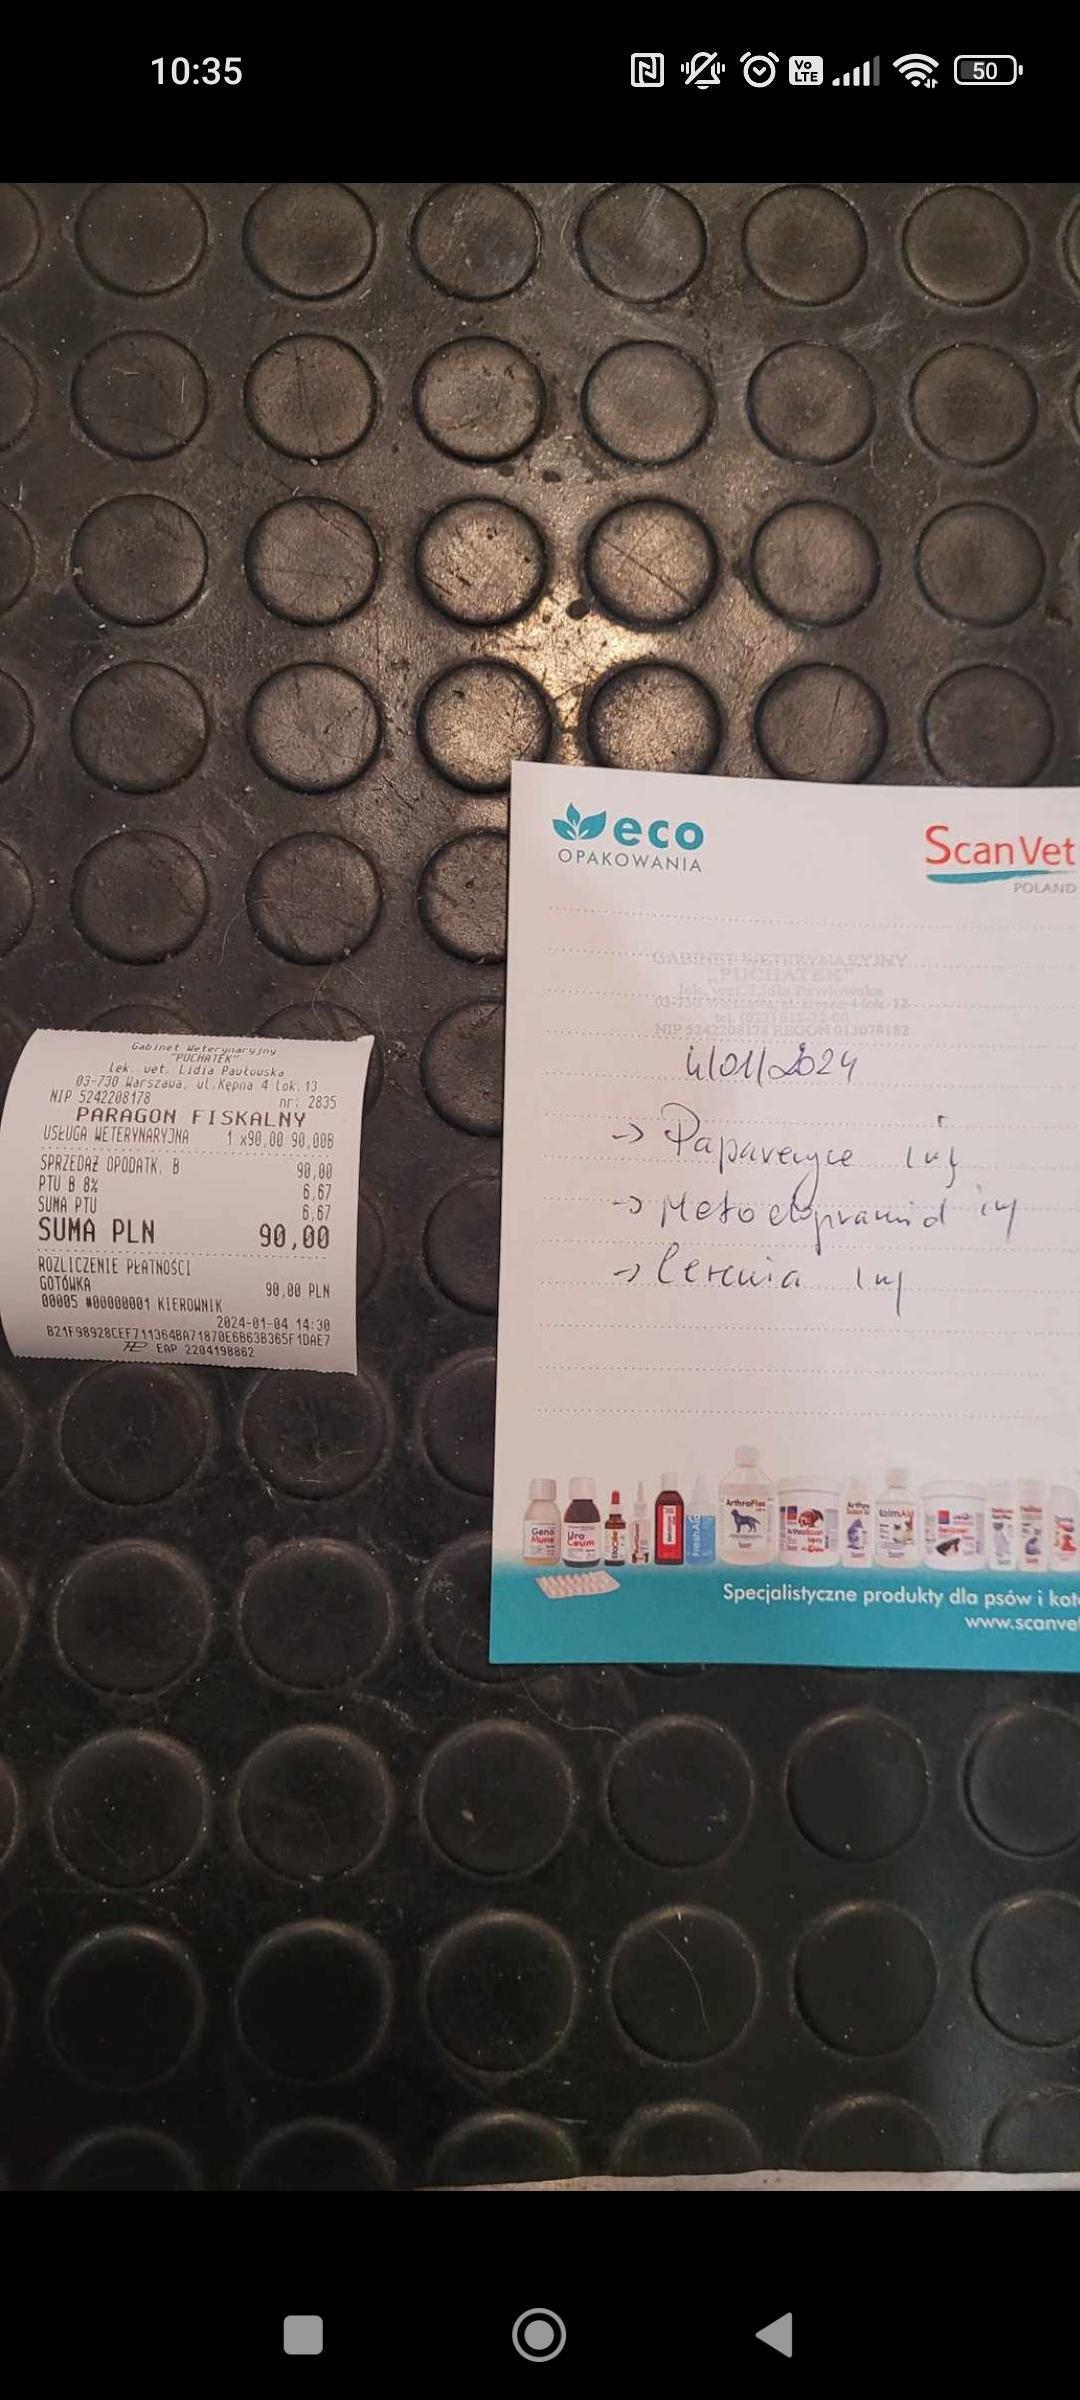 10:35
Vo LTE
50
eco
OPAKOWANIA
ScanVet
POLAND
GABINET WETERYNARYJNY
"PUCHATEK"
lek. wet. Lidia Pawłowska
NIP 5242208178 REGON 013078182
4/01/2024
→ Papaveryce inj
→ Metoclopramid inj
→ Cerenia inj
Gabinet Weterynaryjny
"PUCHATEK"
lek. wet. Lidia Pawłowska
03-730 Warszawa, ul.Kępna 4 lok.13
NIP 5242208178 nr: 2835
PARAGON FISKALNY
USŁUGA WETERYNARYJNA 1 x90,00 90,00B
SPRZEDAŻ OPODATK. B 90,00
PTU B 8% 6,67
SUMA PTU 6,67
SUMA PLN 90,00
ROZLICZENIE PŁATNOŚCI
GOTÓWKA 90,00 PLN
00005 #00000001 KIEROWNIK
2024-01-04 14:30
B21F98928CEF711364BA71870E6B63B365F1DAE7
EAP 2204198862
Geno Mune
Uro Ceum
ArthroFlex
Specjalistyczne produkty dla psów i kot
www.scanvet